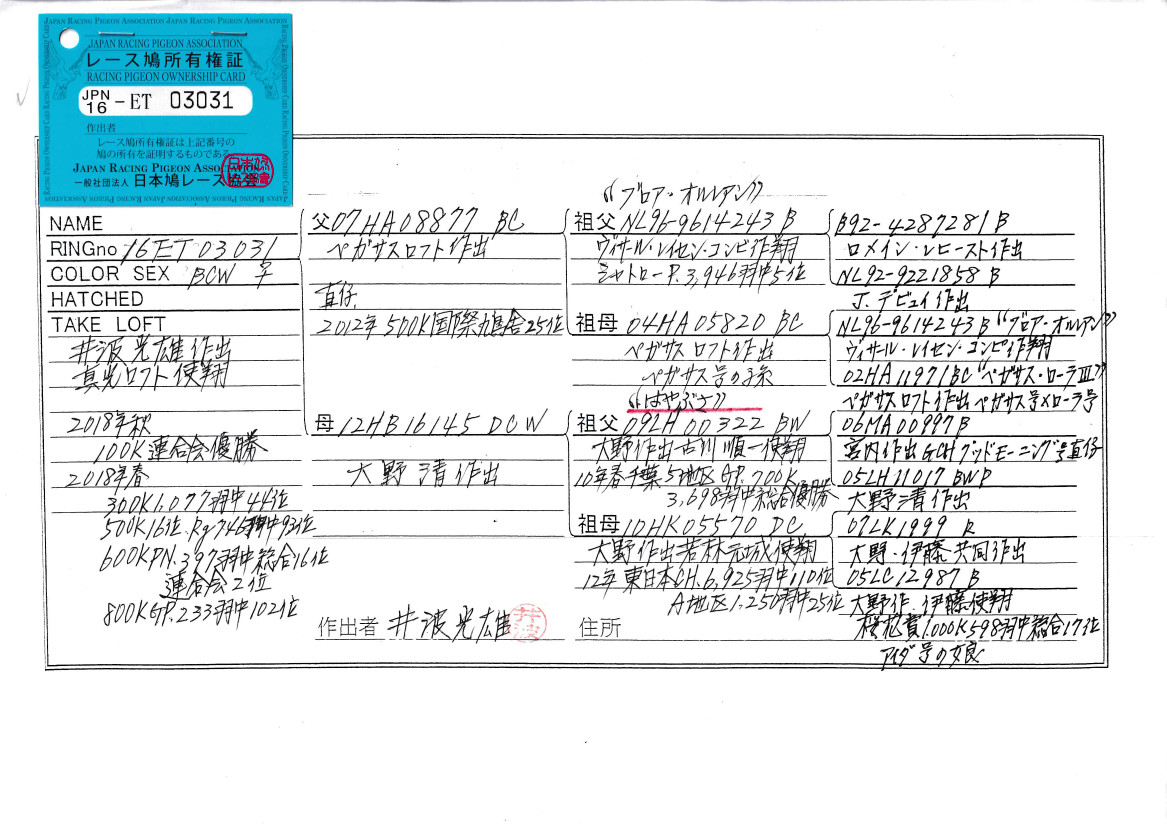 JAPAN RACING PIGEON ASSOCIATION
レース鳩所有権証
RACING PIGEON OWNERSHIP CARD
JPN 16 - ET 03031
作出者
レース鳩所有権証は上記番号の
鳩の所有を証明するものである
JAPAN RACING PIGEON ASSOCIATION
一般社団法人 日本鳩レース協会
NAME
RINGno 16ET03031
COLOR SEX BCW ♀
HATCHED
TAKE LOFT
井波光雄作出
真光ロフト使翔
2018年秋
100K連合会優勝
2018年春
300K1,077羽中44位
500K16位.Rg746羽中93位
600KPN.397羽中総合16位
連合会2位
800KGP.233羽中102位
父07HA08877 BC
ペガサスロフト作出
直仔
2012年500K国際鳩舎25位
母12HB16145 DCW
大野清作出
作出者 井波光雄 井波
"ブロア・オルレアン"
祖父NL96-9614243 B
ヴィサール・レイセン・コンビ作翔
シャトロ-P.3,946羽中5位
祖母 04HA05820 BC
ペガサスロフト作出
ペガサス号の孫
"はやぶさ"
祖父09LH00322 BW
大野作出-古川順一使翔
10年春千葉5地区GP.700K
3,698羽中総合優勝
祖母10HK05570 DC
大野作出若林元成使翔
12年東日本CH.6,925羽中110位
A地区1,250羽中25位
住所
B92-4287281B
ロメイン・レヒースト作出
NL92-9221858 B
J.デビュイ作出
NL96-9614243B"ブロア・オルレアン"
ヴィサール・レイセン・コンビ作翔
02HA11971BC"ペガサス・ローラⅢ"
ペガサスロフト作出ペガサス号×ローラ号
06MA00997B
宮内作出GCHグッドモーニング号直仔
05LH11017BWP
大野清作出
07LK1999 R
大野・伊藤共同作出
05LC12987 B
大野作.伊藤使翔
桜花賞1.000K598羽中総合17位
アイダ号の娘